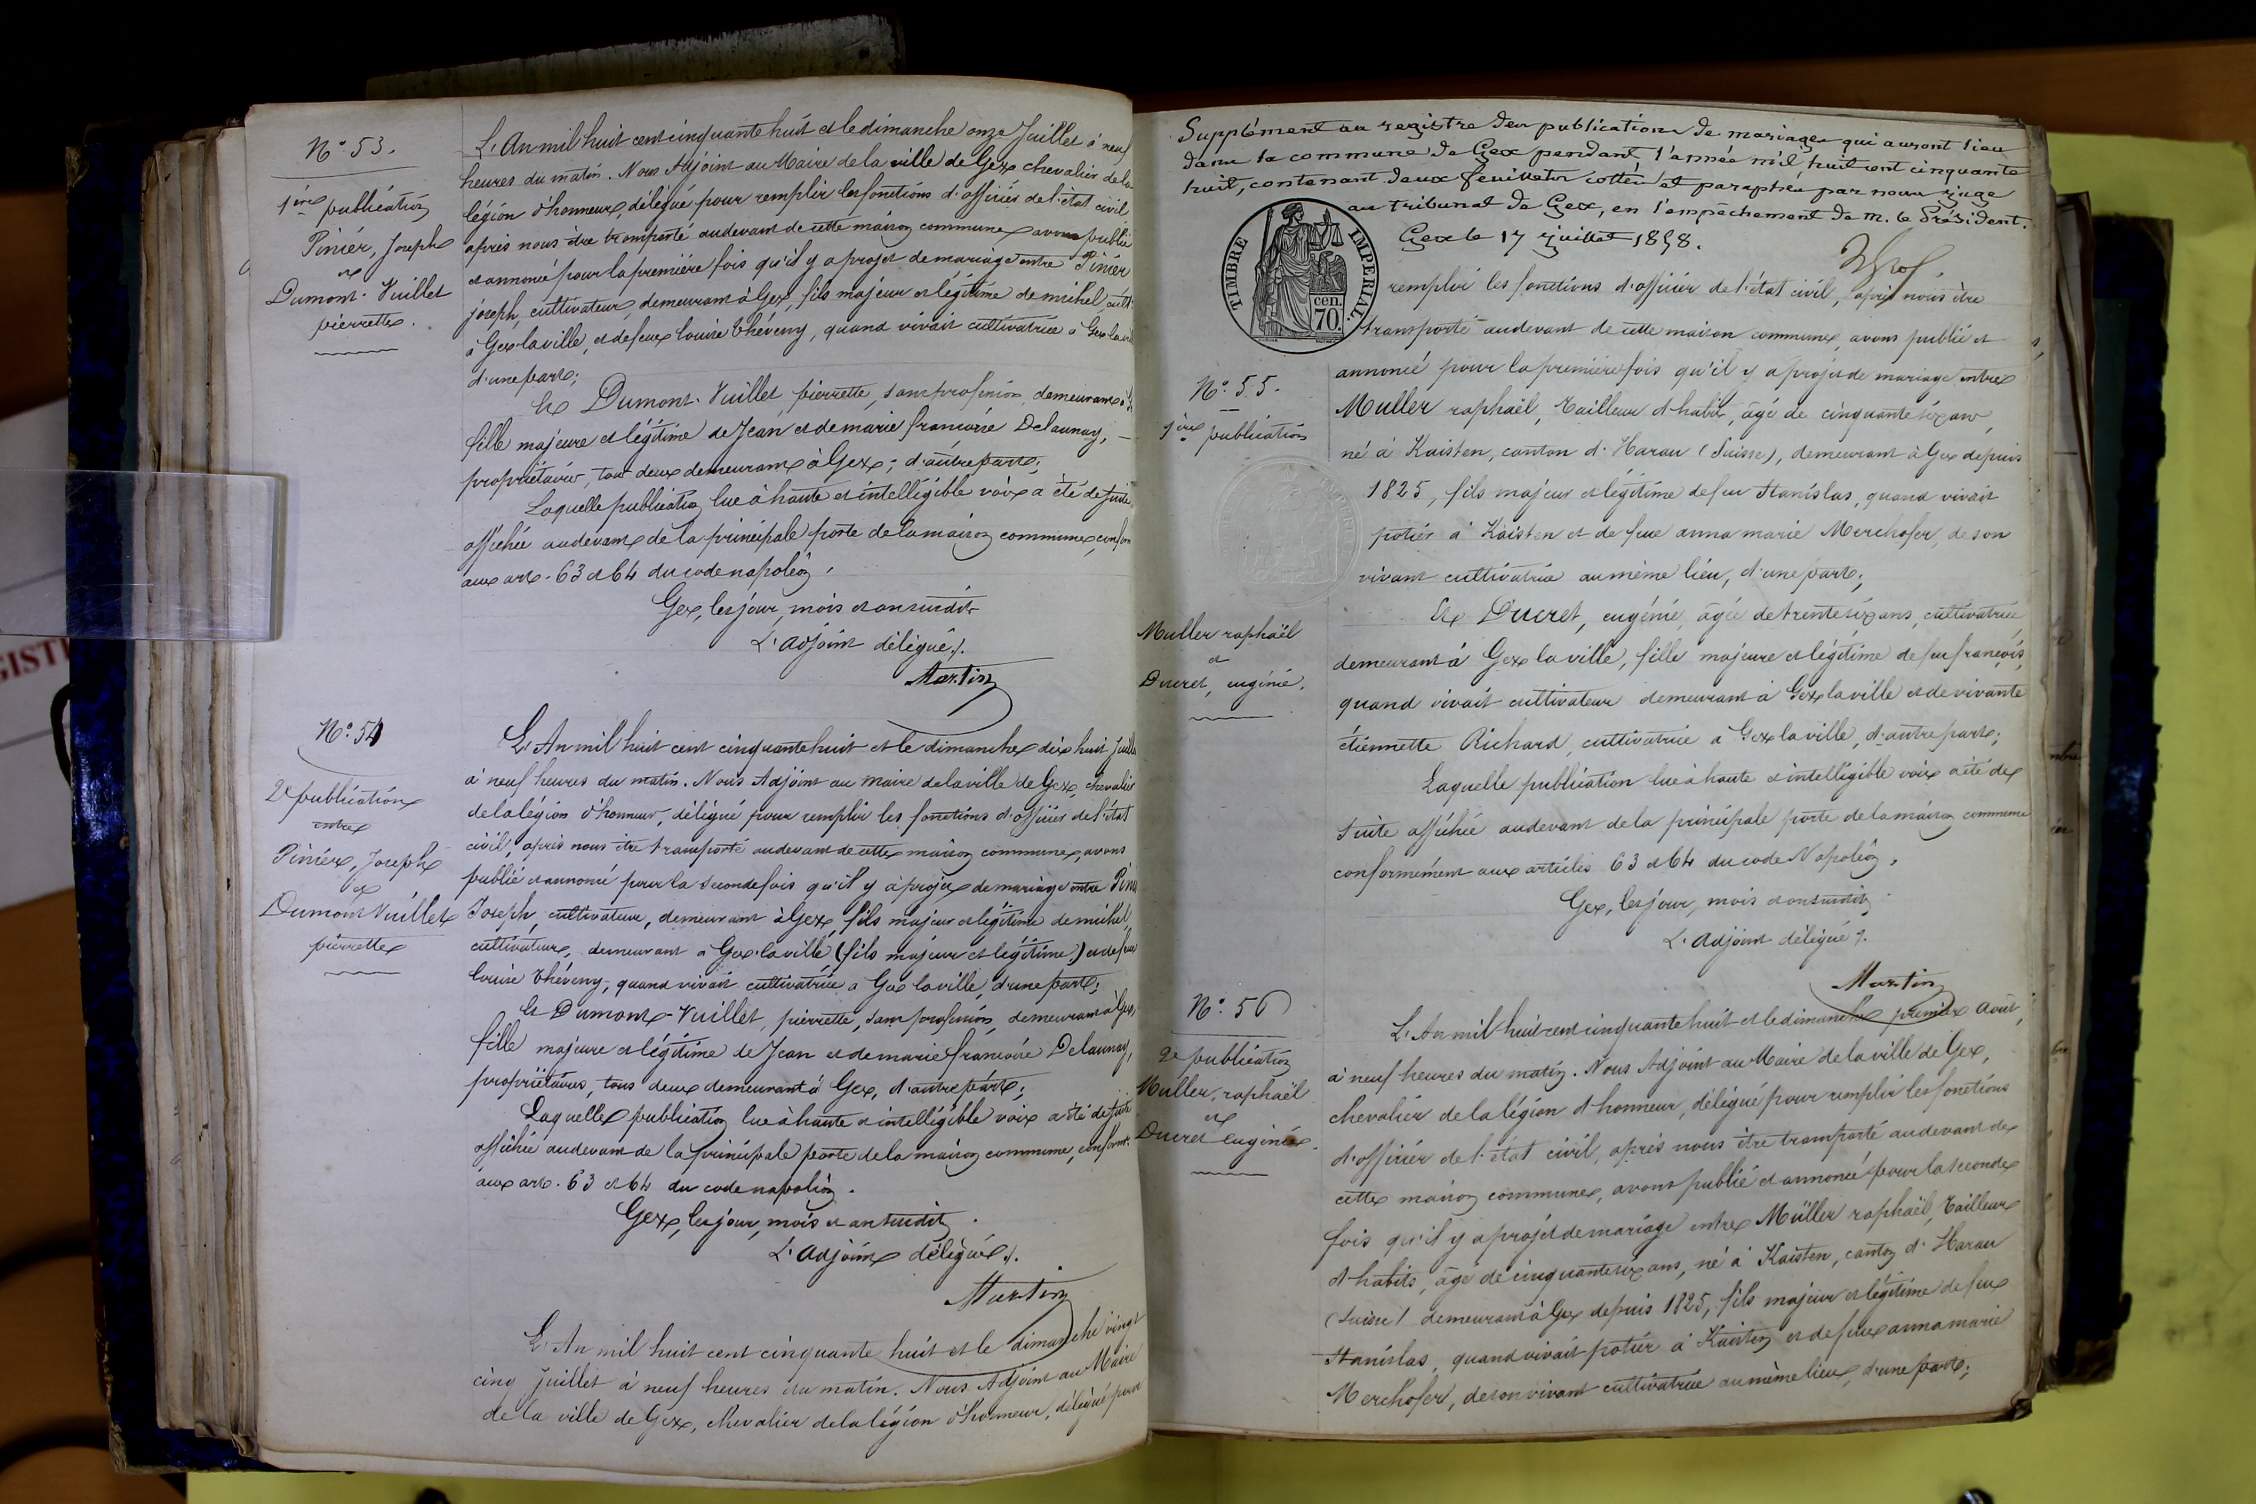 N° 53.
1ère publication
Pinier, Joseph
et
Dumont-Vuillet
pierrette.
L'An mil huit cent cinquante huit et le dimanche onze Juillet à neuf
heures du matin. Nous Adjoint au Maire de la ville de Gex chevalier de la
légion d'honneur, délégué pour remplir les fonctions d'officier de l'état civil
après nous être transporté au devant de cette maison commune avons publié
et annoncé pour la première fois qu'il y a projet de mariage entre Pinier
joseph, cultivateur, demeurant à Gex, fils majeur et légitime de michel, cult.
à Gex la ville, et de feue louise théveny, quand vivait cultivatrice à Gex la ville
d'une part;
Et Dumont-Vuillet, pierrette, sans profession, demeurant à
fille majeure et légitime de Jean et de marie françoise Delaunay,
propriétaires, tous deux demeurant à Gex; d'autre part;
Laquelle publication lue à haute et intelligible voix a été de suite
affichée au devant de la principale porte de la maison commune, conform
aux art. 63 et 64 du code napoléon.
Gex, les jour, mois et an susdits
L'adjoint délégué.
Martin
N° 54
2e publication
entre
Pinier, Joseph
et
Dumont Vuillet
pierrette
L'An mil huit cent cinquante huit et le dimanche dix huit Juillet
à neuf heures du matin. Nous Adjoint au maire de la ville de Gex, chevalier
de la légion d'honneur, délégué pour remplir les fonctions d'officier de l'état
civil, après nous être transporté au devant de cette maison commune, avons
publié et annoncé pour la seconde fois qu'il y a projet de mariage entre Pinier
Joseph, cultivateur, demeurant à Gex, fils majeur et légitime de michel,
cultivateur, demeurant à Gex la ville (fils majeur et légitime) et de feue
louise théveny, quand vivait cultivatrice à Gex la ville, d'une part;
Et Dumont-Vuillet, pierrette, sans profession, demeurant à Gex,
fille majeure et légitime de Jean et de marie françoise Delaunay,
propriétaires, tous deux demeurant à Gex, d'autre part;
Laquelle publication lue à haute et intelligible voix a été de suite
affichée au devant de la principale porte de la maison commune, conform.
aux art. 63 et 64 du code napoléon.
Gex, les jour, mois et an susdits.
L'adjoint délégué.
Martin
L'An mil huit cent cinquante huit et le dimanche vingt
cinq Juillet à neuf heures du matin. Nous Adjoint au Maire
de la ville de Gex, chevalier de la légion d'honneur, délégué pour
Supplément au registre des publications de mariages qui auront lieu
dans la commune de Gex pendant l'année mil huit cent cinquante
huit, contenant deux feuillets cottés et paraphés par nous juge
au tribunal de Gex, en l'empêchement de M. le Président.
Gex le 17 juillet 1858.
TIMBRE IMPERIAL
cen.
70.
remplir les fonctions d'officier de l'état civil, après nous être
transporté au devant de cette maison commune, avons publié et
N° 55.
1ère publication
Muller raphaël
et
Ducret, eugénie.
annoncé pour la première fois qu'il y a projet de mariage entre
Muller raphaël, tailleur d'habits, âgé de cinquante six ans,
né à Kaisten, canton d'Harau (Suisse), demeurant à Gex depuis
1825, fils majeur et légitime de feu Stanislas, quand vivait
potier à Kaisten et de feue anna marie Merchofer, de son
vivant cultivatrice au même lieu, d'une part;
Et Ducret, eugénie, âgée de trente six ans, cultivatrice
demeurant à Gex la ville, fille majeure et légitime de feu françois,
quand vivait cultivateur demeurant à Gex la ville et de vivante
étiennette Richard, cultivatrice à Gex la ville, d'autre part;
Laquelle publication lue à haute et intelligible voix a été de
suite affichée au devant de la principale porte de la maison commune
conformément aux articles 63 et 64 du code Napoléon.
Gex, les jour, mois et an susdits.
L'adjoint délégué.
Martin
N° 56
2e publication
Muller, raphaël
et
Ducret eugénie.
L'An mil huit cent cinquante huit et le dimanche premier Août,
à neuf heures du matin. Nous Adjoint au Maire de la ville de Gex,
chevalier de la légion d'honneur, délégué pour remplir les fonctions
d'officier de l'état civil, après nous être transporté au devant de
cette maison commune, avons publié et annoncé pour la seconde
fois qu'il y a projet de mariage entre Müller raphaël, tailleur
d'habits, âgé de cinquante six ans, né à Kaisten, canton d'Harau
(Suisse) demeurant à Gex depuis 1825, fils majeur et légitime de feu
Stanislas, quand vivait potier à Kaisten et de feue anna marie
Merchofer, de son vivant cultivatrice au même lieu, d'une part;